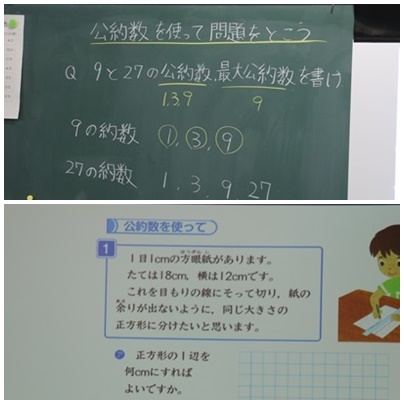 公約数を使って問題をとこう
Q 9と27の公約数,最大公約数を書け
1.3.9 9
9の約数 1,3,9
27の約数 1,3,9,27
公約数を使って
1
1目1cmの方眼紙があります。
たては18cm,横は12cmです。
これを目もりの線にそって切り,紙の
余りが出ないように,同じ大きさの
正方形に分けたいと思います。
ア 正方形の1辺を
何cmにすれば
よいですか。